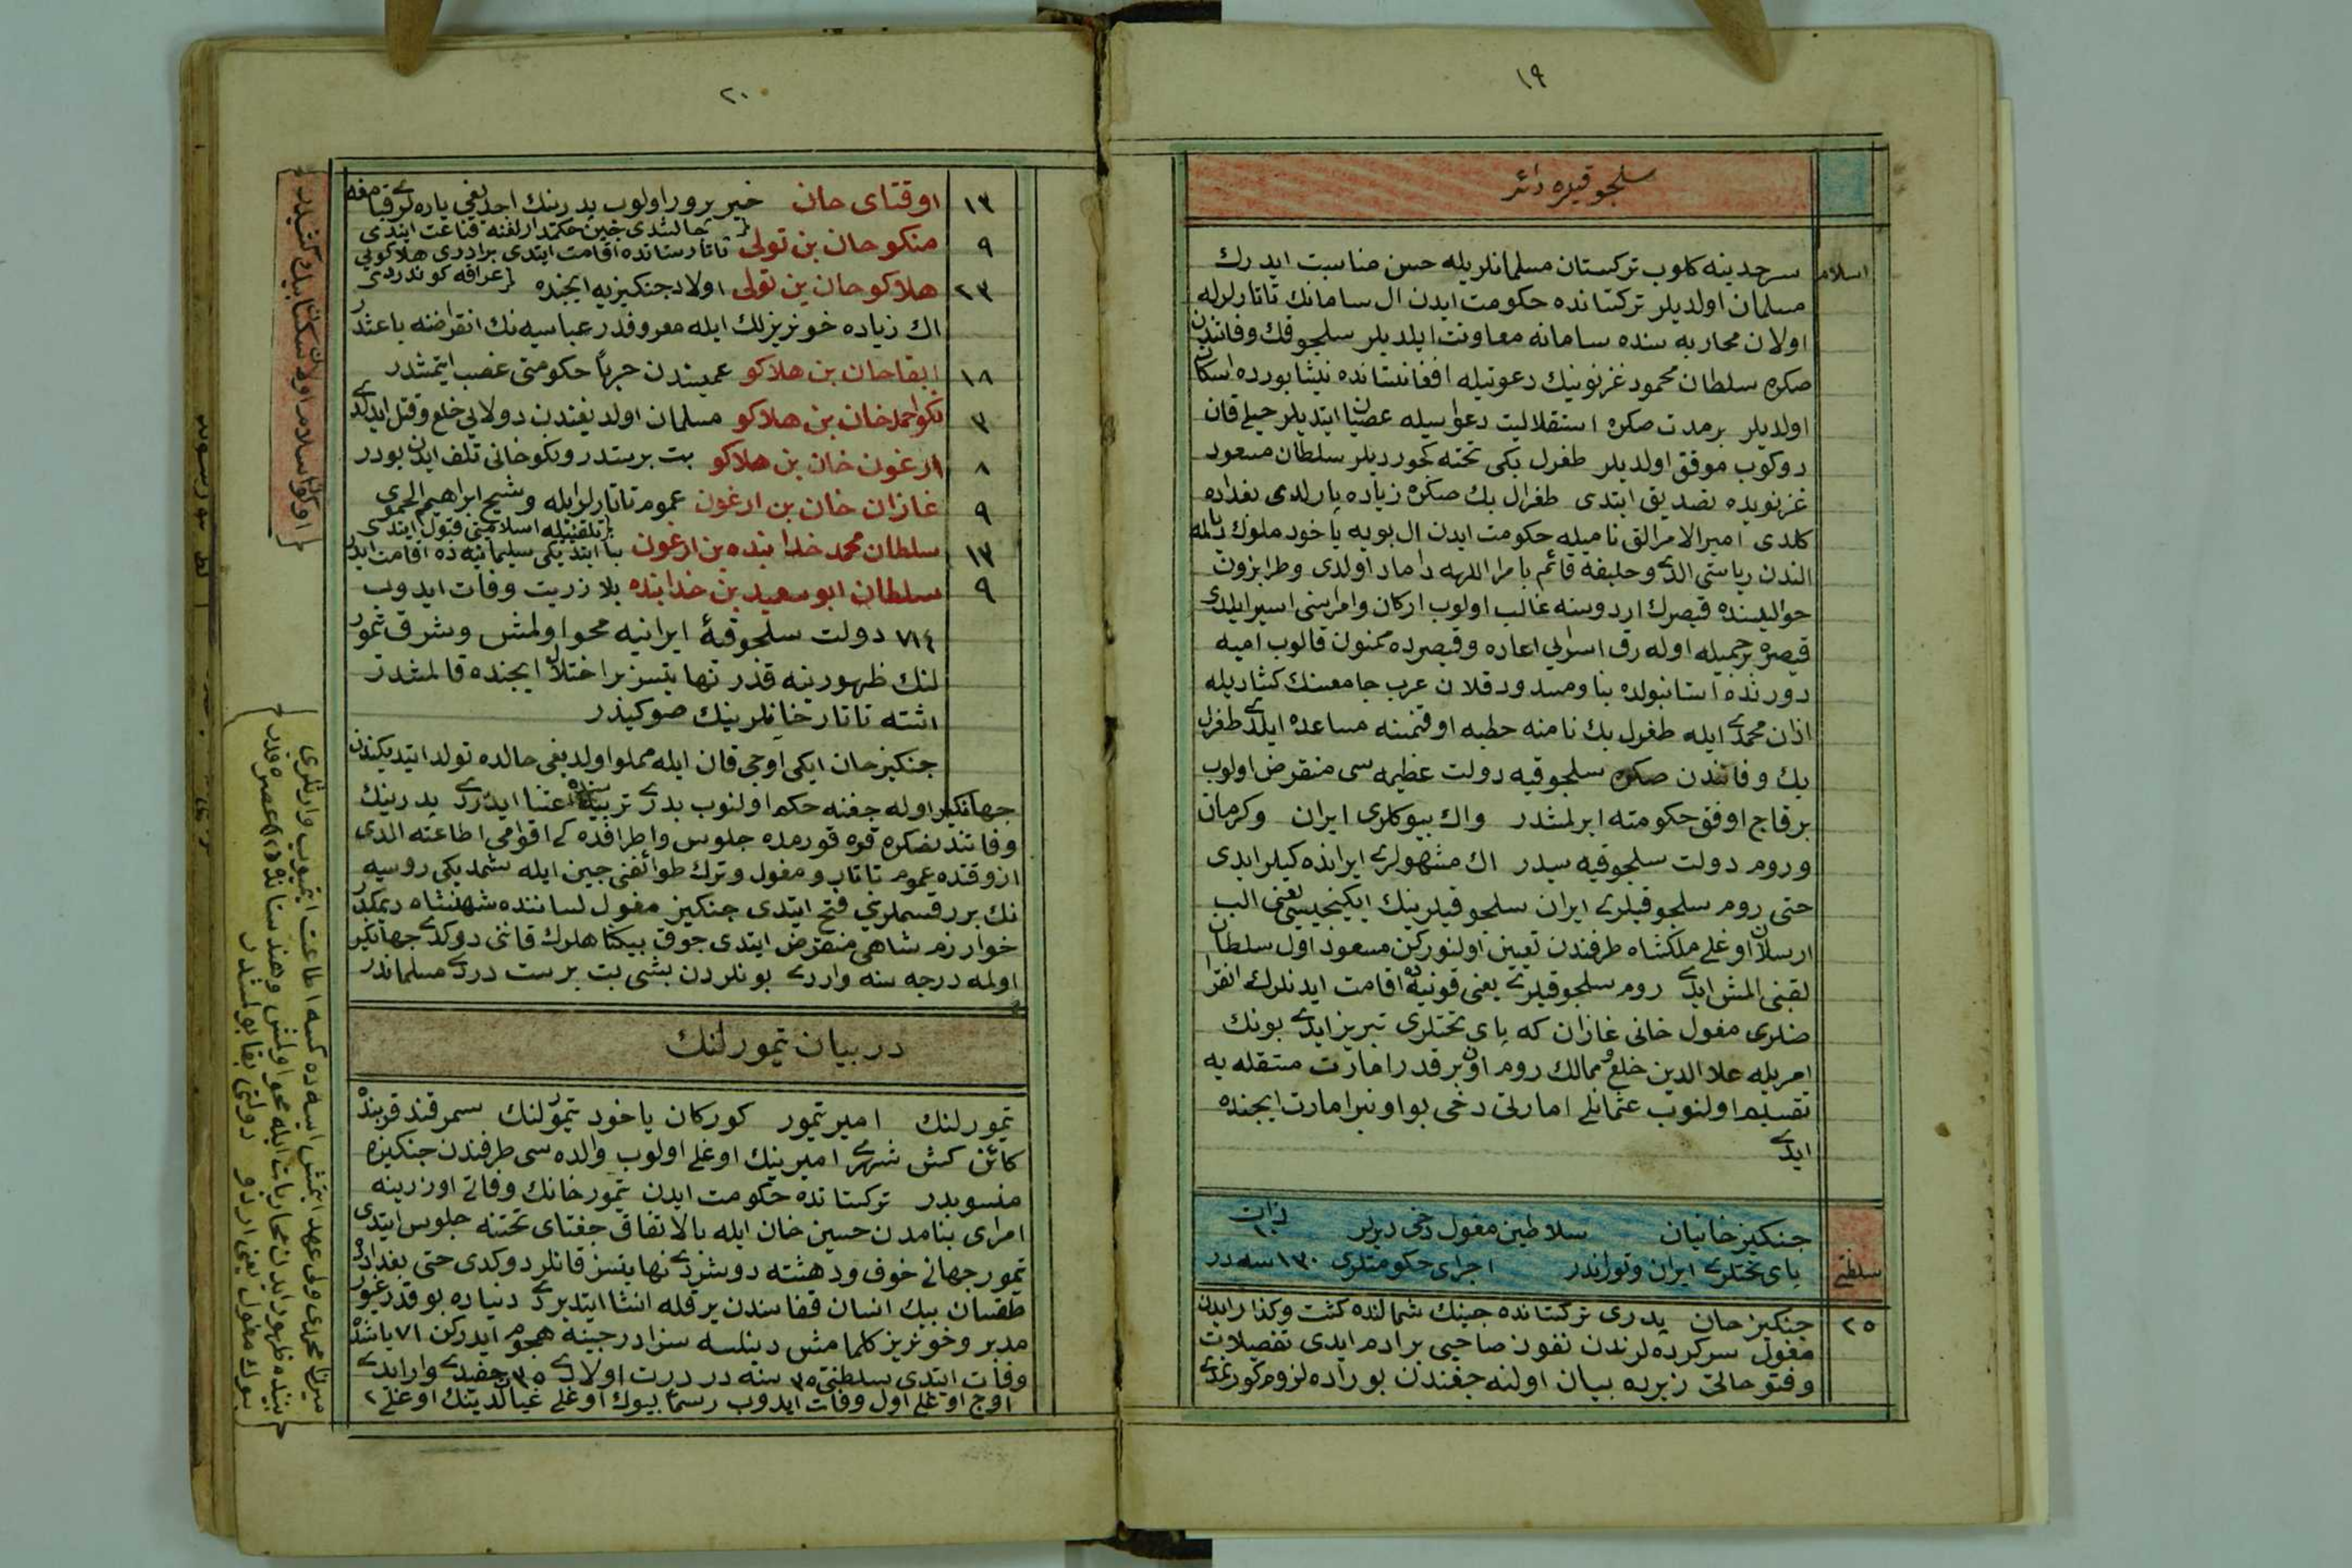 ١٩
سلجوقيره دائر
اسلام
سرحدينه كلوب تركستان مسلمانلريله حسن مناسبت ايدرك
مسلمان اولديلر تركستانده حكومت ايدن ال سامانك تاتارلرله
اولان محاربه سنده سامانه معاونت ايلديلر سلجوقك وفاتندن
صكره سلطان محمود غزنوينك دعوتيله افغانستانده نيشابورده اسكان
اولديلر برمدت صكره استقلاليت دعواسيله عصيان ايتديلر خيلى قان
دوكوب موفق اولديلر طغرل بكى تخته كچورديلر سلطان مسعود
غزنويده تصديق ايتدى طغرل بك صكره زياده پارلدى بغداده
كلدى اميرالامرالق ناميله حكومت ايدن ال بويه ياخود ملوك ديالمه
الندن رياستى الدى وخليفه قائم بامرالله داماد اولدى وطرابزون
حواليسنده قيصرك اردوسنه غالب اولوب اركان وامراسنى اسير ايلدى
قيصره برجميله اوله رق اسرايى اعاده وقيصرده ممنون قالوب اميه
دورنده استانبولده بنا ومسدود قلان عرب جامعسنك كشاديله
اذان محمدى ايله طغرل بك نامنه خطبه اوقنمسنه مساعده ايلدى طغرل
بك وفاتندن صكره سلجوقيه دولت عظيمه سى منقرض اولوب
برقاج اوفق حكومته ايرلمشدر واك بيوكلرى ايران وكرمان
وروم دولت سلجوقيه سيدر اك مشهورلرى ايرانده كيلر ايدى
حتى روم سلجوقيلرى ايران سلجوقيلرينك ايكنجيسى يعنى الب
ارسلان اوغلى ملكشاه طرفندن تعيين اولنوركن مسعود اول سلطان
لقبنى المش ايدى روم سلجوقيلرى يعنى قونيه ده اقامت ايدنلرك انقرا
ضلرى مغول خانى غازان كه پاى تختلرى تبريز ايدى بونك
امريله علاالدين خلع و ممالك روم اون برقدر امارت مستقله يه
تقسيم اولنوب عثمانلى امارتى دخى بو اونبر امارت ايچنده
ايدى
جنكيزخانيان سلاطين مغول دخى ديرلر ذات ١٠
سلطنتى
پاى تختلرى ايران وتوراندر اجراى حكومتلرى ١٣٠ سنه در
٢٥
جنكيزخان پدرى تركستانده چينك شمالنده كشت وكذار ايدن
مغول سركرده لرندن نفوذ صاحبى برادم ايدى تفصيلات
وفتوحاتى زيرده بيان اولنه جغندن بوراده لزوم كورنمدى
٢٠
١٣ اوقتاى خان خير پرور اولوب پدرينك احديغى ياره لرى قپامغه
چالشدى چين حكمدارلغنه قناعت ايتدى
٩ منكوخان بن تولى تاتارستانده اقامت ايتدى برادرى هلاكويى
عراقه كوندردى
٢٣ هلاكوخان بن تولى اولاد جنكيزيه ايچنده
اك زياده خونريزلك ايله معروفدر عباسيه نك انقراضنه باعثدر
١٨ ابقاخان بن هلاكو عميسندن جبرا حكومتى غصب ايتمشدر
٣ نكو احمدخان بن هلاكو مسلمان اولديغندن دولايى خلع وقتل ايدلدى
٨ ارغون خان بن هلاكو بت پرستدر ونكوخانى تلف ايدن بودر
٩ غازان خان بن ارغون عموم تاتارلر ايله وشيخ ابراهيم الحموى
تلقينيله اسلاميتى قبول ايتدى
١٣ سلطان محمد خدابنده بن ارغون بنا ايتديكى سليمانيه ده اقامت ايدر
٩ سلطان ابوسعيد بن خدابنده بلا ذريت وفات ايدوب
٧١٤ دولت سلجوقيۀ ايرانيه محو اولمش وشرق تيمور
لنك ظهورينه قدر نهايتسز براختلال ايچنده قالمشدر
اشته تاتار خانلرينك صوكيدر
جنكيزخان ايكى آوجى قان ايله مملو اولديغى حالده تولد ايتديكندن
جهانكير اوله جغنه حكم اولنوب پدرى تربيه سنه اعتنا ايدردى پدرينك
وفاتندنصكره قره قورمده جلوس واطرافده كى اقوامى اطاعته الدى
ازوقتده عموم تاتار ومغول وترك طوائفنى چين ايله شمديكى روسيه
نك برر قسملرينى فتح ايتدى جنكيز مغول لساننده شهنشاه ديمكدر
خوارزم شاهى منقرض ايتدى چوق بيكناهلرك قاننى دوكدى جهانكير
اولمه درجه سنه واردى بونلردن بشى بت پرست دردى مسلماندر
در بيان تيمورلنك
تيمورلنك امير تيمور كوركان ياخود تيمورلنك سمرقند قربنده
كائن كش شهرى اميرينك اوغلى اولوب والده سى طرفندن جنكيزه
منسوبدر تركستانده حكومت ايدن تيمورخانك وفاتى اوزرينه
امراى بنامدن حسين خان ايله بالاتفاق جغتاى تختنه جلوس ايتدى
تيمور جهانى خوف ودهشته دوشردى نهايتسز قانلر دوكدى حتى بغدادده
طقسان بيك انسان قفاسندن برقله انشا ايتديردى دنياده بوقدر غيور
مدبر وخونريز كلمامش دينلسه سزادر چينه هجوم ايدركن ٧١ ياشنده
وفات ايتدى سلطنتى ٣٥ سنه در درت اولادى ٣٥ حفيدى وار ايدى
اوج اوغلى اول وفات ايدوب رسما بيوك اوغلى غياث الدينك اوغلى ٢
ميرزا محمدى ولى عهد ايتمش ايسه ده كيمسه اطاعت ايتميوب وارثلرى
بيننده ظهور ايدن محاربات ايله محو اولمش وهندستانده (١٣) عصره قدر
بيوك مغول يعنى اردو دولتى بقا بولمشدر